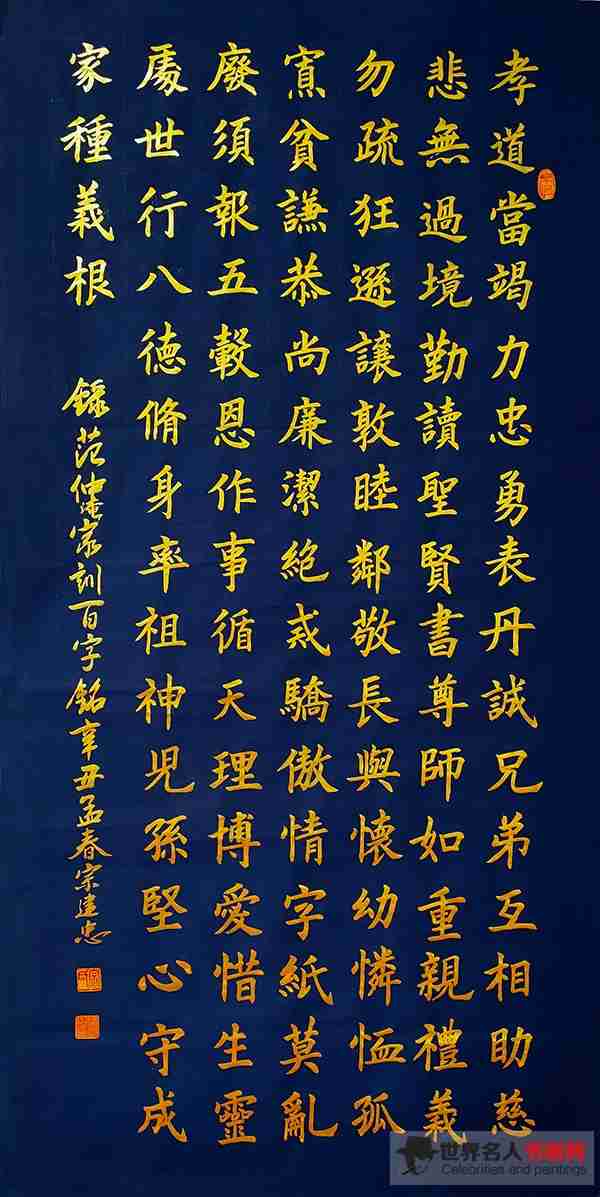 孝道當竭力忠勇表丹誠兄弟互相助慈
悲無過境勤讀聖賢書尊師如重親禮義
勿疏狂遜讓敦睦鄰敬長與懷幼憐恤孤
寡貧謙恭尚廉潔絕戒驕傲情字紙莫亂
廢須報五穀恩作事循天理博愛惜生靈
處世行八德脩身率祖神兒孫堅心守成
家種義根
錄范仲淹家訓百字銘辛丑孟春宗建忠
世界名人书画网
Celebrities and paintings